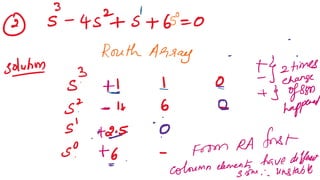 ② s³ - 4s² + s¹ + 6s⁰ = 0
Routh Array
Solution
s³ +1 1 0
s² -4 6 0
s¹ +2.5 0
s⁰ +6 -
+ } 2 times
- } change
+ } of sign
happened
From RA first
column elements have
sign. unstable